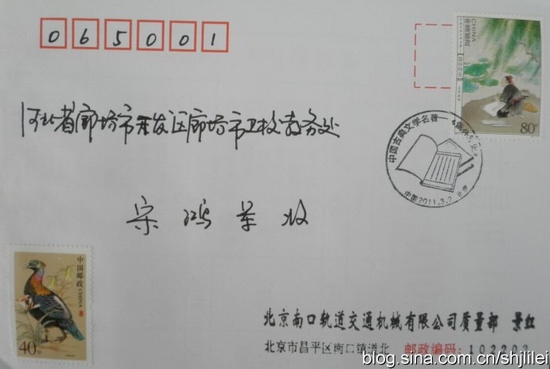 065001
中国邮政
CHINA
80分
中国古典文学名著
中国2011.3.2.北京
河北省廊坊市开发区廊坊市卫校教务处
宋鸿 收
中国邮政
CHINA
40分
北京南口轨道交通机械有限公司质量部 景红
北京市昌平区南口镇道北 邮政编码:102202
blog.sina.com.cn/shjlilei